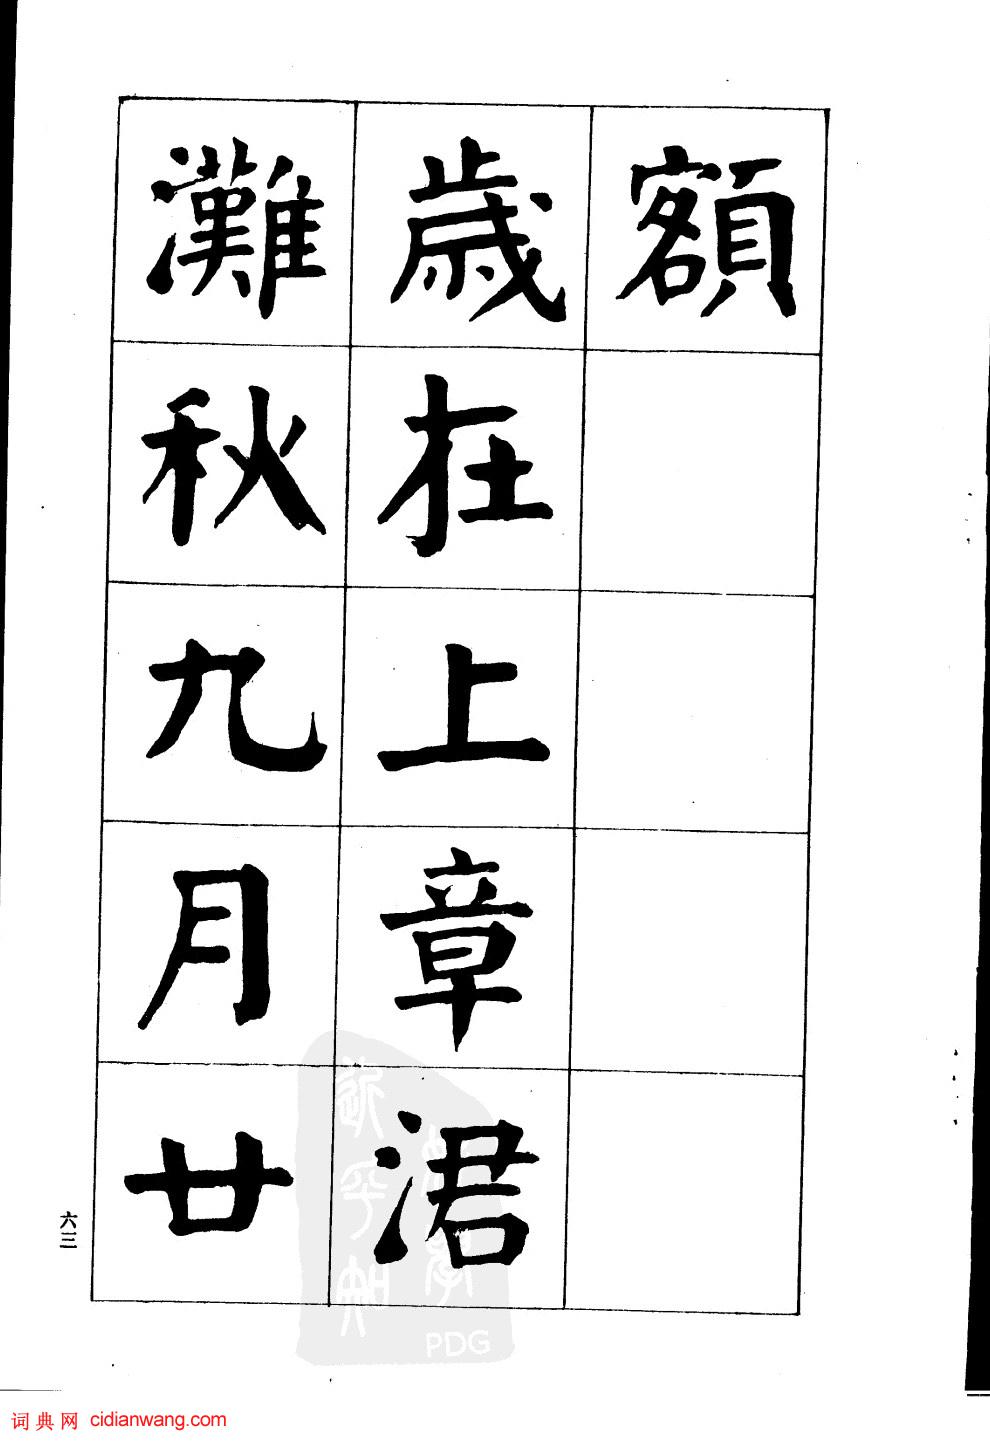 額
歲在上章涒
灘秋九月廿
六三
PDG
词典网 cidianwang.com